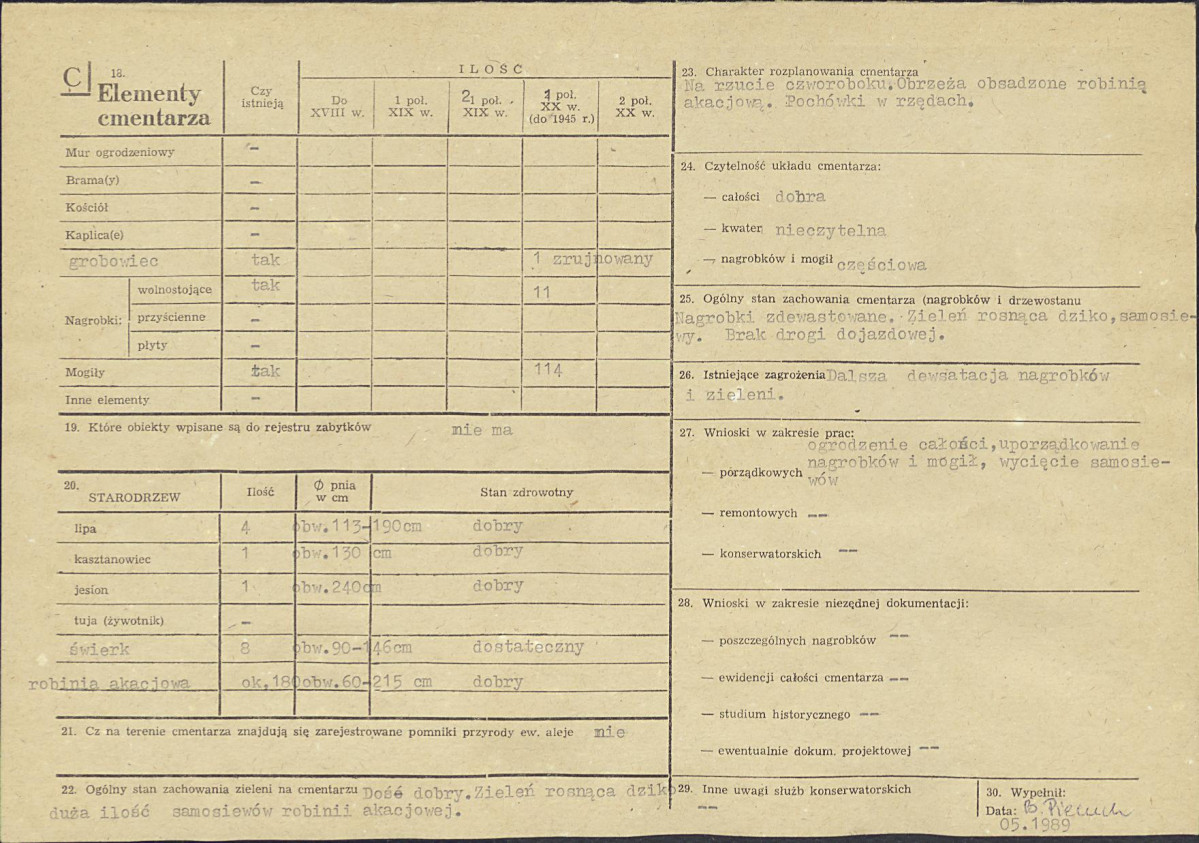 C
18.
Elementy
cmentarza
Czy
istnieją
ILOŚĆ
Do
XVIII w.
1 poł.
XIX w.
21 poł.
XIX w.
1 poł.
XX w.
(do 1945 r.)
2 poł.
XX w.
Mur ogrodzeniowy –
Brama(y) –
Kościół –
Kaplica(e) –
grobowiec tak 1 zrujnowany
Nagrobki:
wolnostojące tak 11
przyścienne –
płyty –
Mogiły tak 114
Inne elementy –
19. Które obiekty wpisane są do rejestru zabytków nie ma
20.
STARODRZEW
Ilość
Ø pnia
w cm
Stan zdrowotny
lipa 4 obw.113-190cm dobry
kasztanowiec 1 obw.130 cm dobry
jesion 1 obw.240cm dobry
tuja (żywotnik) –
świerk 8 obw.90-146cm dostateczny
robinia akacjowa ok,180 obw.60-215 cm dobry
21. Cz na terenie cmentarza znajdują się zarejestrowane pomniki przyrody ew. aleje nie
22. Ogólny stan zachowania zieleni na cmentarzu Dość dobry.Zieleń rosnąca dziko
duża ilość samosiewów robinii akacjowej.
23. Charakter rozplanowania cmentarza
Na rzucie czworoboku.Obrzeża obsadzone robinią
akacjową. Pochówki w rzędach.
24. Czytelność układu cmentarza:
— całości dobra
— kwater nieczytelna
— nagrobków i mogił częściowa
25. Ogólny stan zachowania cmentarza (nagrobków i drzewostanu
Nagrobki zdewastowane. Zieleń rosnąca dziko,samosie-
wy. Brak drogi dojazdowej.
26. Istniejące zagrożenia Dalsza dewsatacja nagrobków
i zieleni.
27. Wnioski w zakresie prac:
ogrodzenie całości,uporządkowanie
— porządkowych nagrobków i mogił, wycięcie samosie-
wów
— remontowych --
— konserwatorskich --
28. Wnioski w zakresie niezędnej dokumentacji:
— poszczególnych nagrobków --
— ewidencji całości cmentarza --
— studium historycznego --
— ewentualnie dokum. projektowej --
29. Inne uwagi służb konserwatorskich
--
30. Wypełnił:
Data: B. Pieruch
05.1989